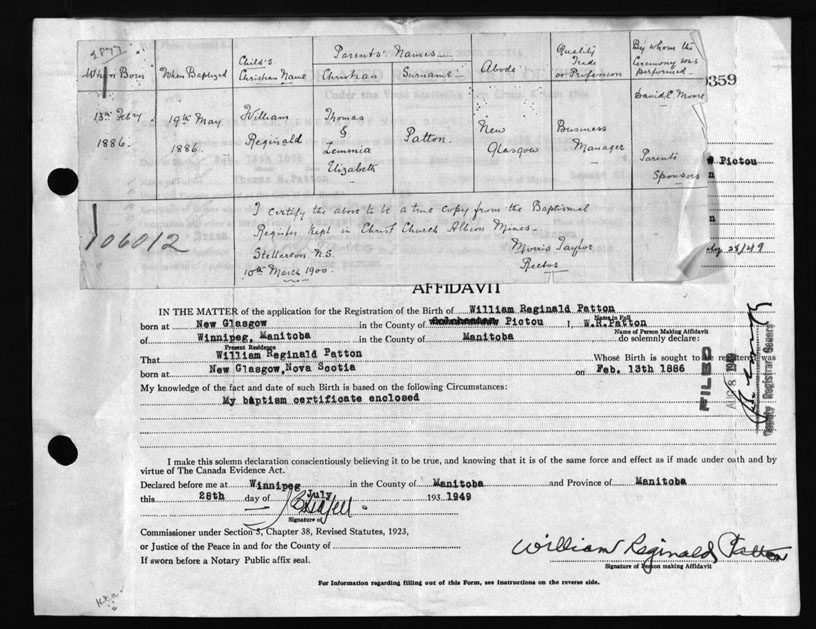 1877
When Born
When Baptized
Child's
Christian Name
Parents' Names
Christian
Surname
Abode
Quality
Trade
or Profession
By whom the
Ceremony was
performed
13th Feby
1886.
19th May
1886.
William
Reginald
Thomas
&
Elizabeth
Patton.
New
Glasgow
Business
Manager
David C. Moore
Parents
Sponsors
0359
Pictou
I certify the above to be a true copy from the Baptismal
Register kept in Christ Church Albion Mines.
Stellarton. N.S.
Morris Taylor
10th March 1900.
Rector
106012
AFFIDAVIT
IN THE MATTER of the application for the Registration of the Birth of William Reginald Patton
Name in Full
born at New Glasgow in the County of Pictou I, W.R.Patton
Name of Person Making Affidavit
of Winnipeg, Manitoba in the County of Manitoba do solemnly declare:
Present Residence
That William Reginald Patton Whose Birth is sought to be registered was
born at New Glasgow, Nova Scotia on Feb. 13th 1886
My knowledge of the fact and date of such Birth is based on the following Circumstances:
My baptism certificate enclosed
FILED
AUG 8 1949
Deputy Registrar General
I make this solemn declaration conscientiously believing it to be true, and knowing that it is of the same force and effect as if made under oath and by
virtue of The Canada Evidence Act.
Declared before me at Winnipeg in the County of Manitoba and Province of Manitoba
this 28th day of July 193 1949
Signature of
Commissioner under Section 5, Chapter 38, Revised Statutes, 1923,
or Justice of the Peace in and for the County of
If sworn before a Notary Public affix seal.
William Reginald Patton
Signature of Person making Affidavit
For Information regarding filling out of this Form, see Instructions on the reverse side.